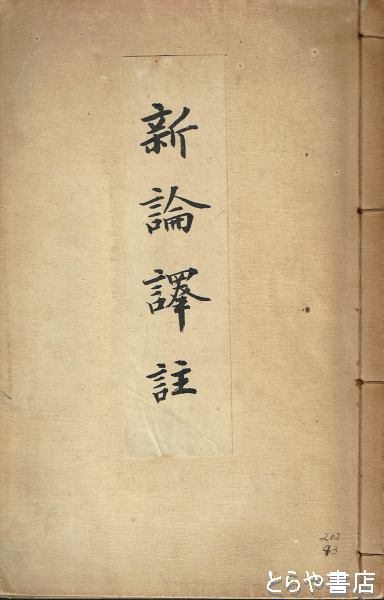 新論譯註
202
43
とらや書店